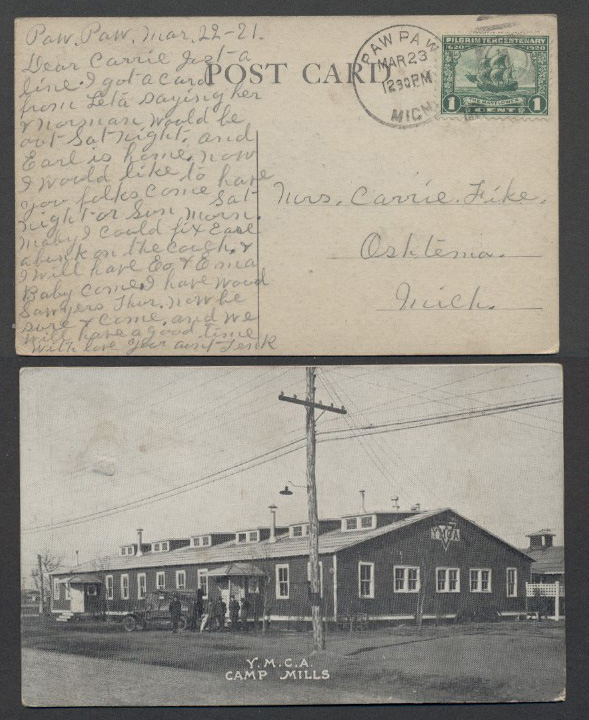 Paw. Paw. Mar. 22-21.
Dear Carrie Just a
line. I got a card
from Leta saying her
& Norman would be
out Sat night. and
Earl is home. now
I would like to have
you folks come Sat-
night or Sun Morn.
Maby I could fix Earl
a bunk on the couch. &
I will have Eo & Ema
Baby come. I have wood
Sawyers Thur. now be
sure & come. and we
will have a good time
with love your aunt Jenk
POST CARD
PAW PAW
MAR 23
1230PM
MICH.
PILGRIM TERCENTENARY
1620 1920
THE MAYFLOWER
1 CENT 1
Mrs. Carrie. Fike.
Oshtemo.
Mich.
YMCA
Y.M.C.A.
CAMP MILLS